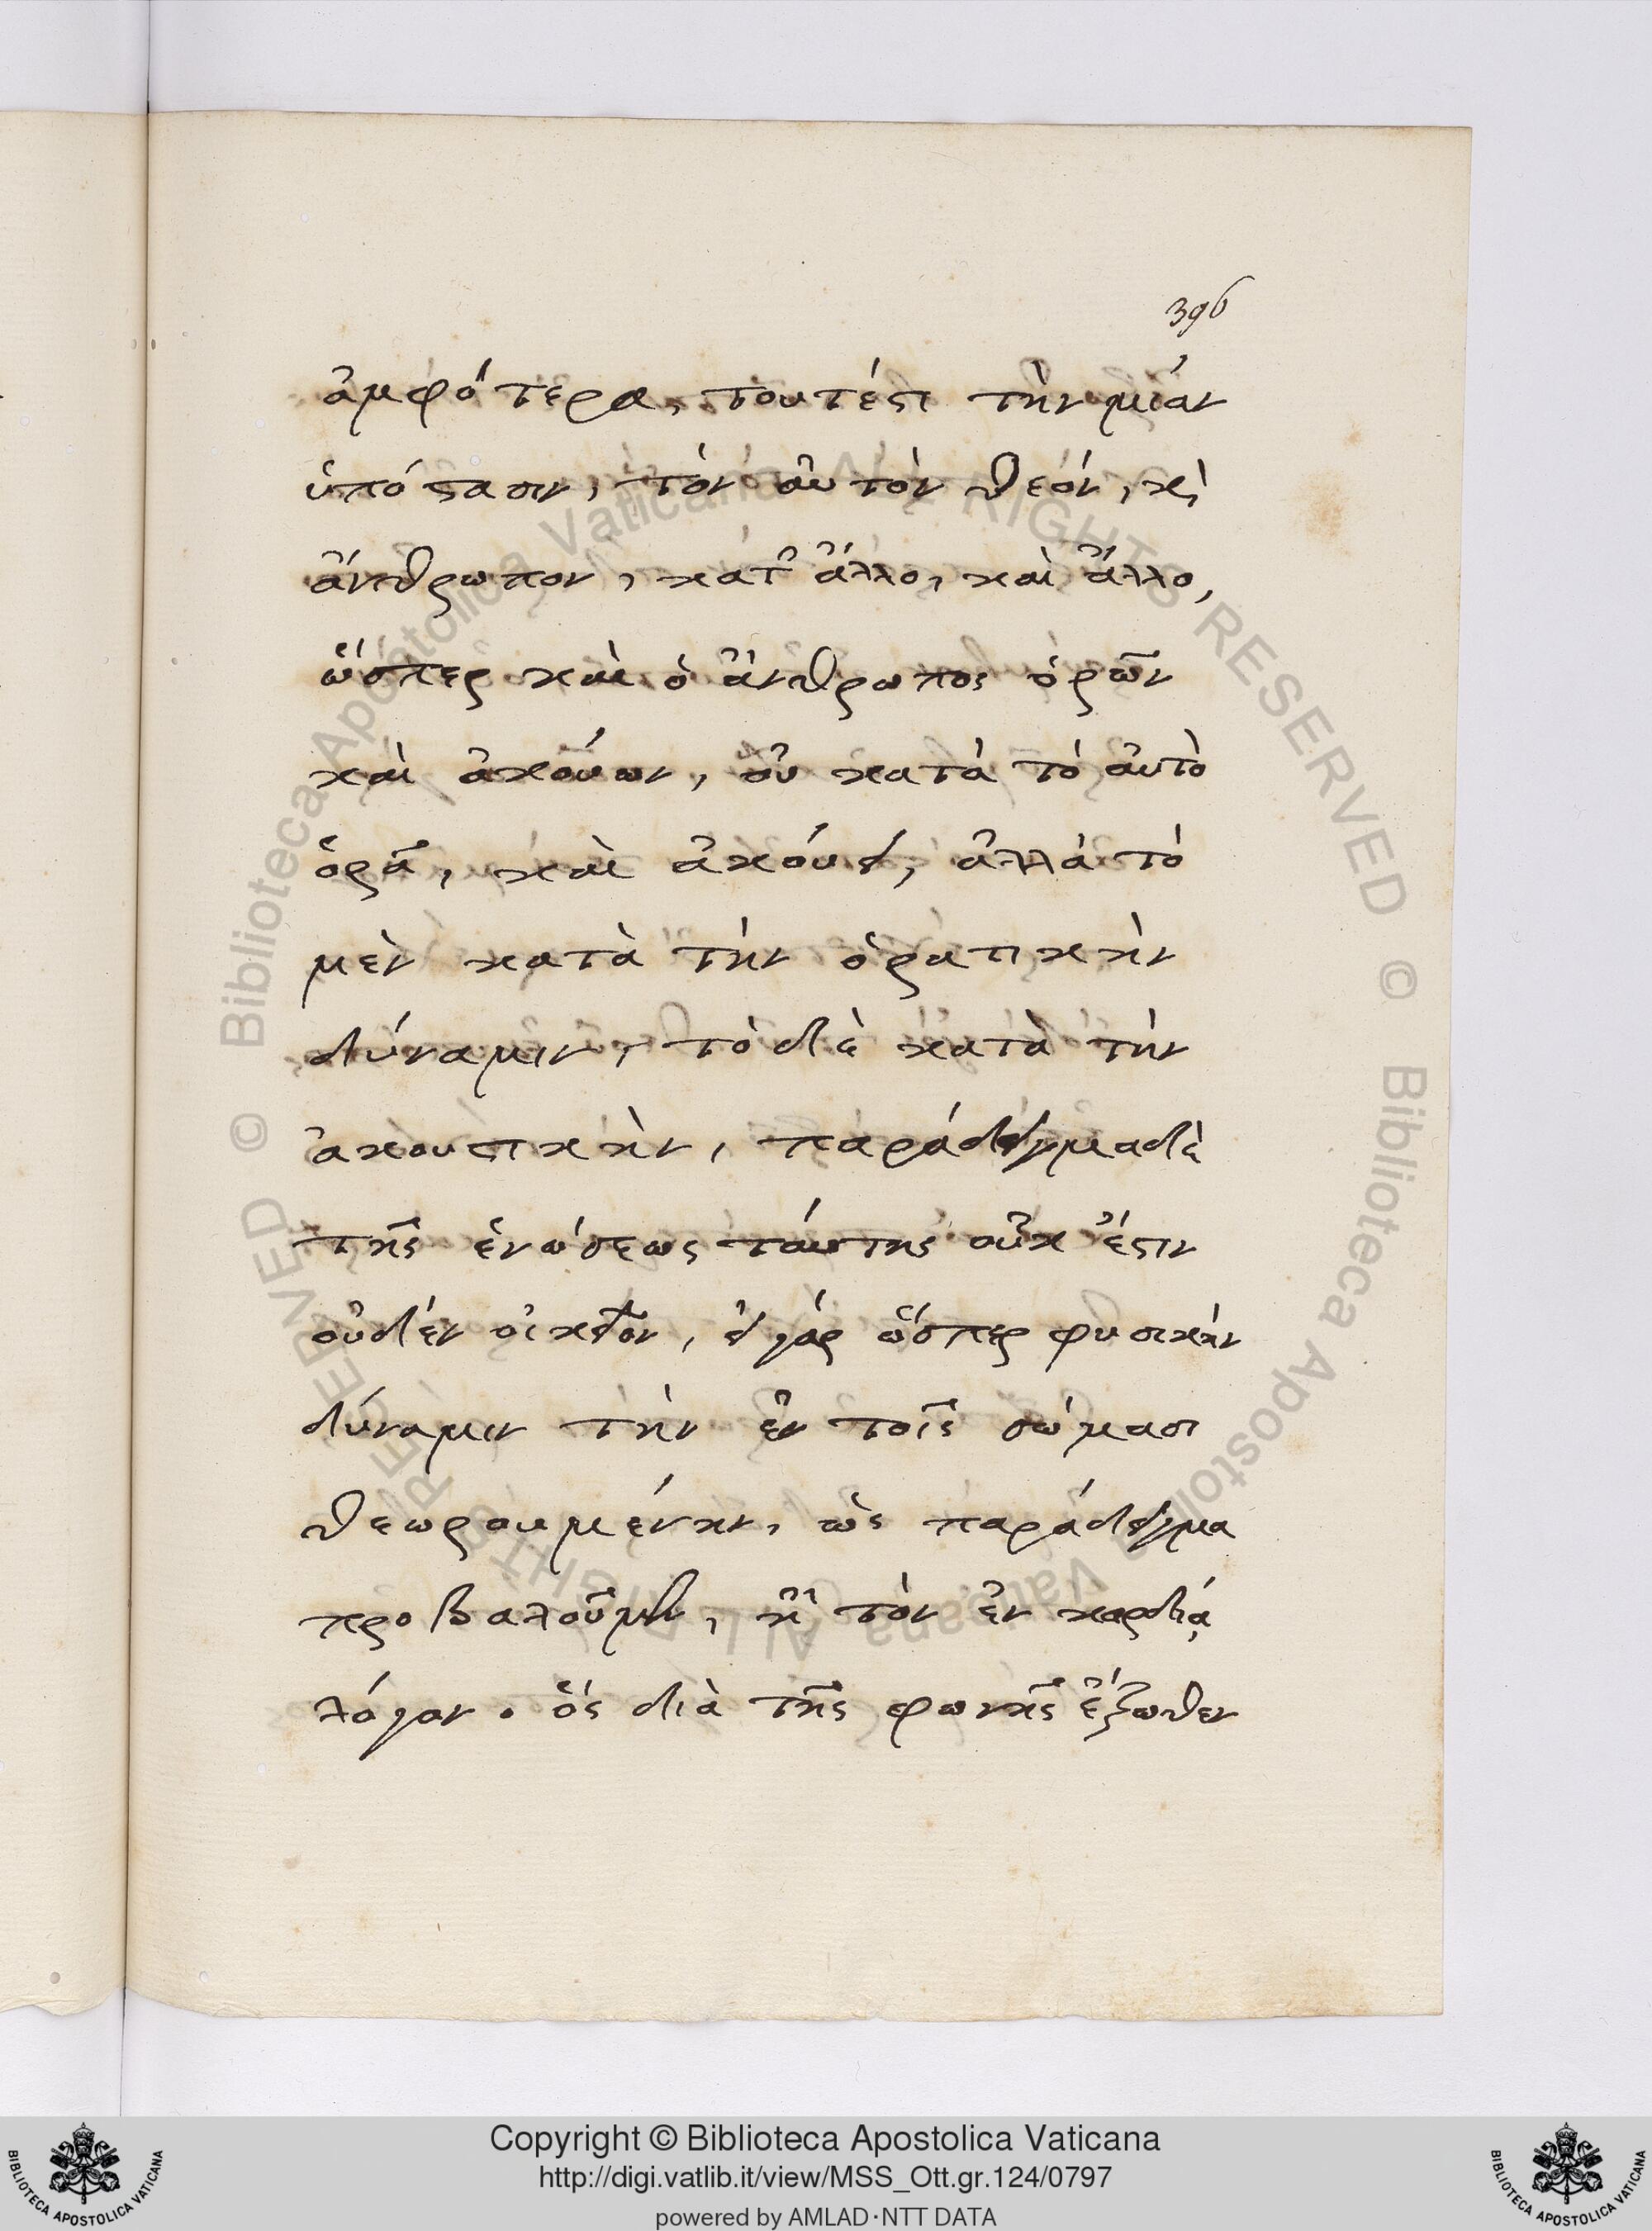 396
ἀμφότερα, τουτέστι τὴν μίαν
ὑπόστασιν, τὸν αὐτὸν θεόν, κὶ
ἄνθρωπον, κατ᾽ ἄλλο, καὶ ἄλλο,
ὥσπερ καὶ ὁ ἄνθρωπος ὁρῶν
καὶ ἀκούων, οὐ κατὰ τὸ αὐτὸ
ὁρᾶ, καὶ ἀκούει, ἀλλὰ τὸ
μὲν κατὰ τὴν ὁρατικὴν
δύναμιν, τὸ δὲ κατὰ τὴν
ἀκουστικὴν, παράδειγμα δὲ
τῆς ἑνώσεως ταύτης οὐκ ἔστιν
οὐδὲν οἰκεῖον, εἰ γὰρ ὥσπερ φυσικὴν
δύναμιν τὴν ἐν τοῖς σώμασι
θεωρουμένην, ὡς παράδειγμα
προβαλοῦμεν, ἢ τὸν ἐν καρδίᾳ
λόγον. ὃς διὰ τῆς φωνῆς ἔξωθεν
Biblioteca Apostolica Vaticana ALL RIGHTS RESERVED ©
Biblioteca Apostolica Vaticana ALL RIGHTS RESERVED ©
Copyright © Biblioteca Apostolica Vaticana
http://digi.vatlib.it/view/MSS_Ott.gr.124/0797
powered by AMLAD·NTT DATA
BIBLIOTECA APOSTOLICA VATICANA
BIBLIOTECA APOSTOLICA VATICANA